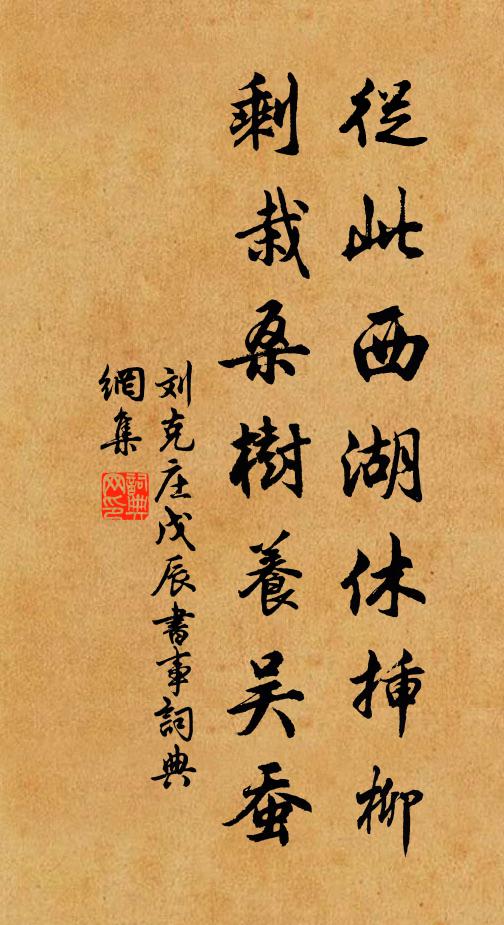 從此西湖休挿柳
剩栽桑樹養吴蚕
刘克庄戊辰書事詞典
網集
詞典
网印